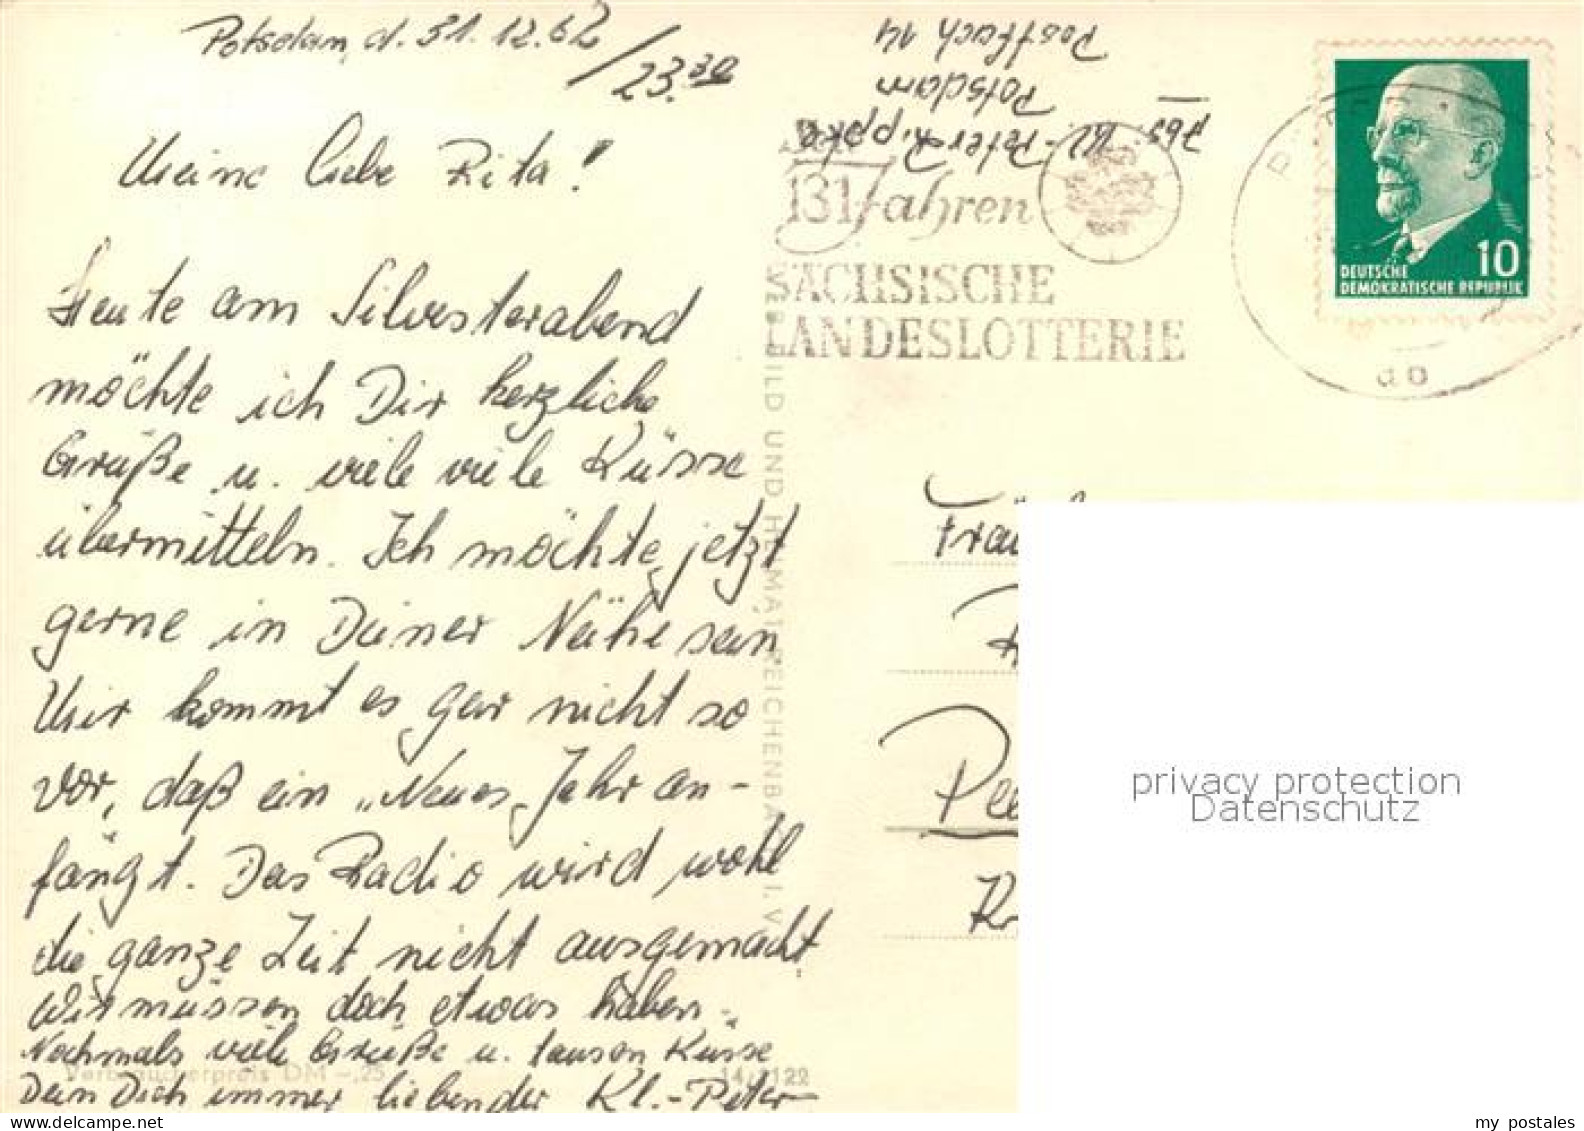 Potsdam, d. 31.12.62 / 23.30
Meine liebe Rita!
Heute am Silvesterabend
möchte ich Dir herzliche
Grüße u. viele viele Küsse
übermitteln. Ich möchte jetzt
gerne in Deiner Nähe sein
Mir kommt es gar nicht so
vor, daß ein „Neues Jahr an-
fängt. Das Radio wird wohl
die ganze Zeit nicht ausgemacht
Wir müssen doch etwas haben.
Nochmals viele Grüße u. tausen Küsse
Dein Dich immer liebender Kl.-Peter
Verbraucherpreis DM -,25
14/1122
VEB BILD UND HEIMAT REICHENBACH I. V.
Abs.
Potsdam
Postfach 14
131 Jahren
SÄCHSISCHE
LANDESLOTTERIE
10
DEUTSCHE
DEMOKRATISCHE REPUBLIK
privacy protection
Datenschutz
my postales